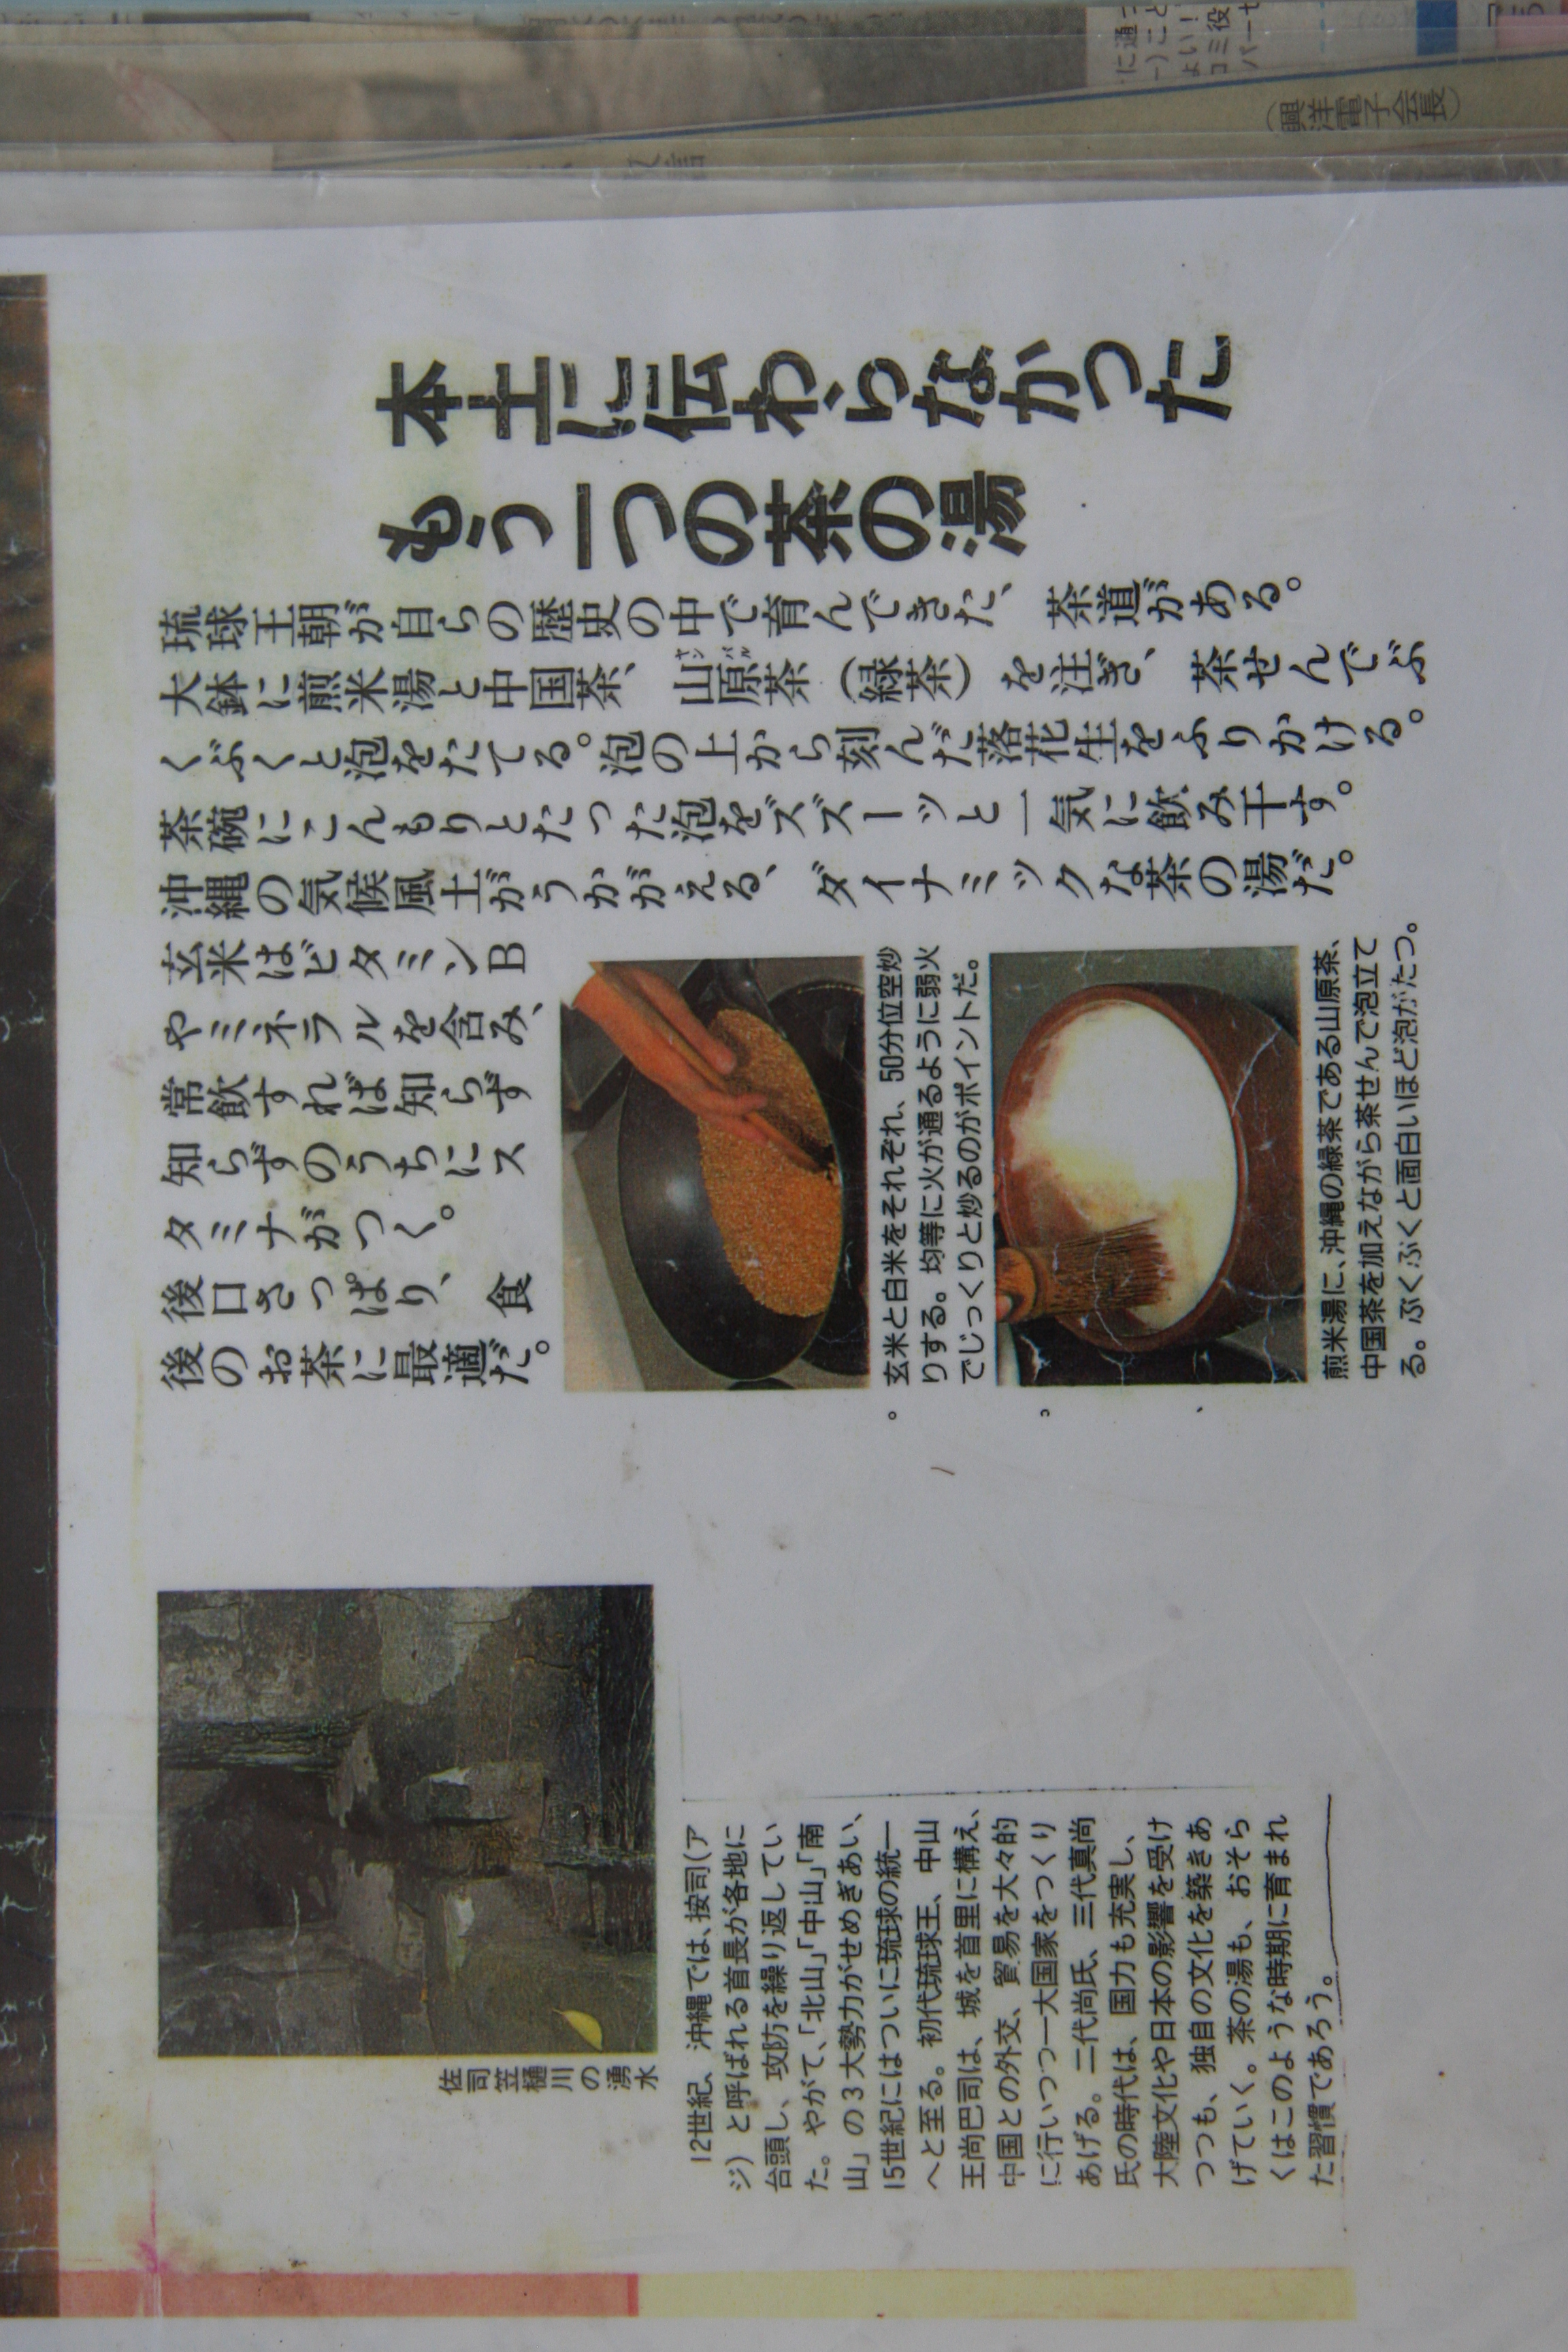 本土に伝わらなかった
もう一つの茶の湯
琉球王朝が自らの歴史の中で育んできた、茶道がある。
大鉢に煎米湯と中国茶、山原茶（緑茶）を注ぎ、茶せんでぶ
ヤンバル
くぶくと泡をたてる。泡の上から刻んだ落花生をふりかける。
茶碗にこんもりとたった泡をズズーッと一気に飲み干す。
沖縄の気候風土がうかがえる、ダイナミックな茶の湯だ。
玄米はビタミンB
やミネラルを含み、
常飲すれば知らず
知らずのうちにス
タミナがつく。
後口さっぱり、食
後のお茶に最適だ。
玄米と白米をそれぞれ、50分位空炒
りする。均等に火が通るように弱火
でじっくりと炒るのがポイントだ。
煎米湯に、沖縄の緑茶である山原茶、
中国茶を加えながら茶せんで泡立て
る。ぶくぶくと面白いほど泡がたつ。
佐司笠樋川の湧水
12世紀、沖縄では、按司（ア
ジ）と呼ばれる首長が各地に
台頭し、攻防を繰り返してい
た。やがて、「北山」「中山」「南
山」の3大勢力がせめぎあい、
15世紀にはついに琉球の統一
へと至る。初代琉球王、中山
王尚巴司は、城を首里に構え、
中国との外交、貿易を大々的
に行いつつ一大国家をつくり
あげる。二代尚氏、三代真尚
氏の時代は、国力も充実し、
大陸文化や日本の影響を受け
つつも、独自の文化を築きあ
げていく。茶の湯も、おそら
くはこのような時期に育まれ
た習慣であろう。
に通
こと
よい！
コミ役
バーセ
（興洋電子会長）